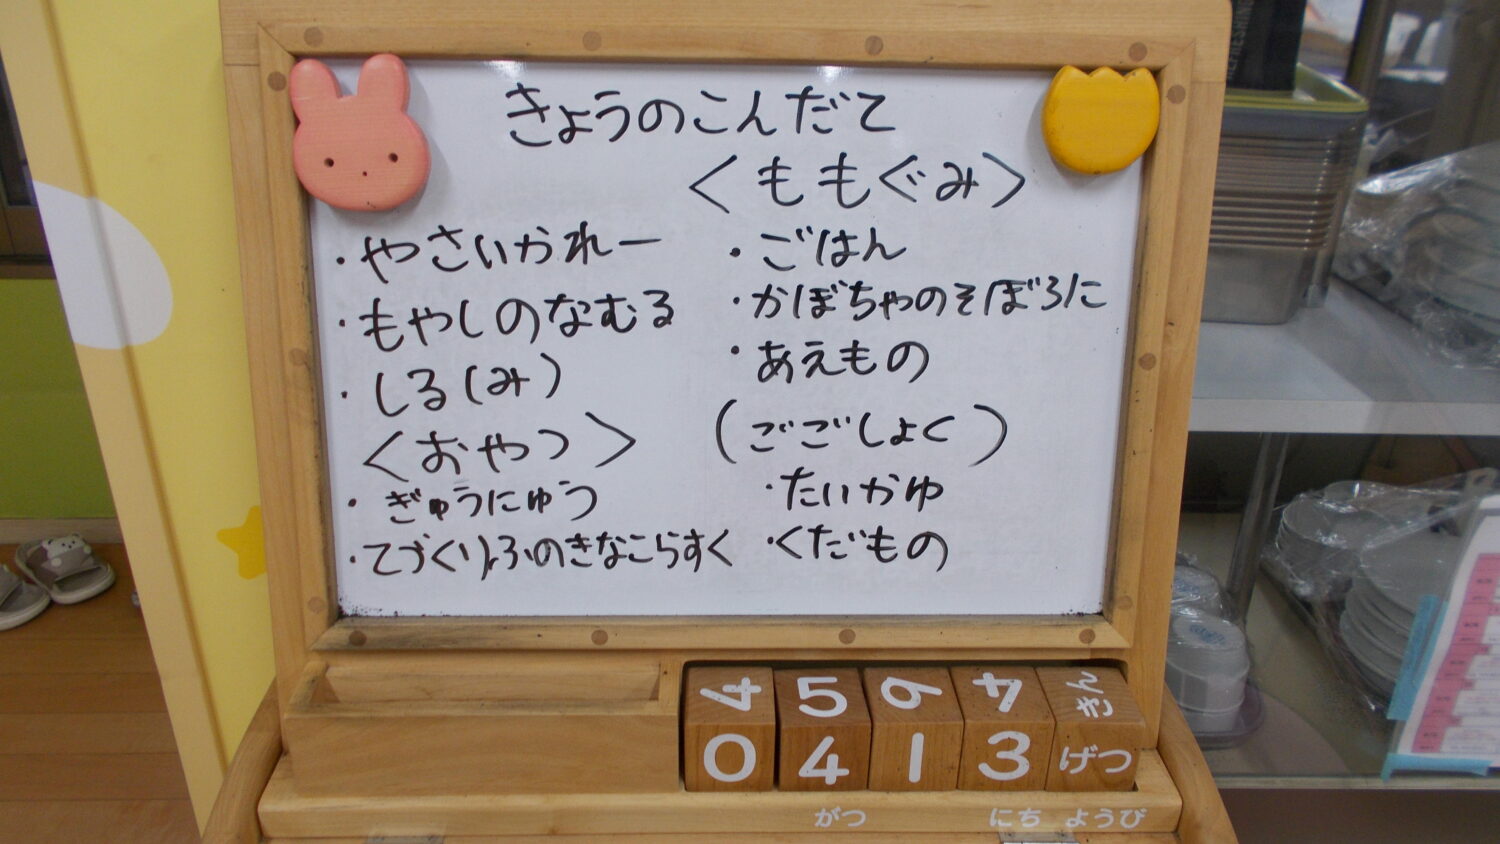 きょうのこんだて
・やさいかれー
・もやしのなむる
・しる(み)
<おやつ>
・ぎゅうにゅう
・てづくりふのきなこらすく
<ももぐみ>
・ごはん
・かぼちゃのそぼろに
・あえもの
(ごごしょく)
・たいかゆ
・くだもの
4 5 6 4 きん
0 4 1 3 げつ
がつ にち ようび